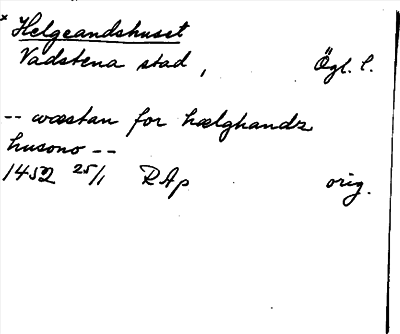 × Helgeandshuset
Vadstena stad, Ögl. l.
-- wæstan for hælghandz
husono --
1452 25/1 RAp orig.